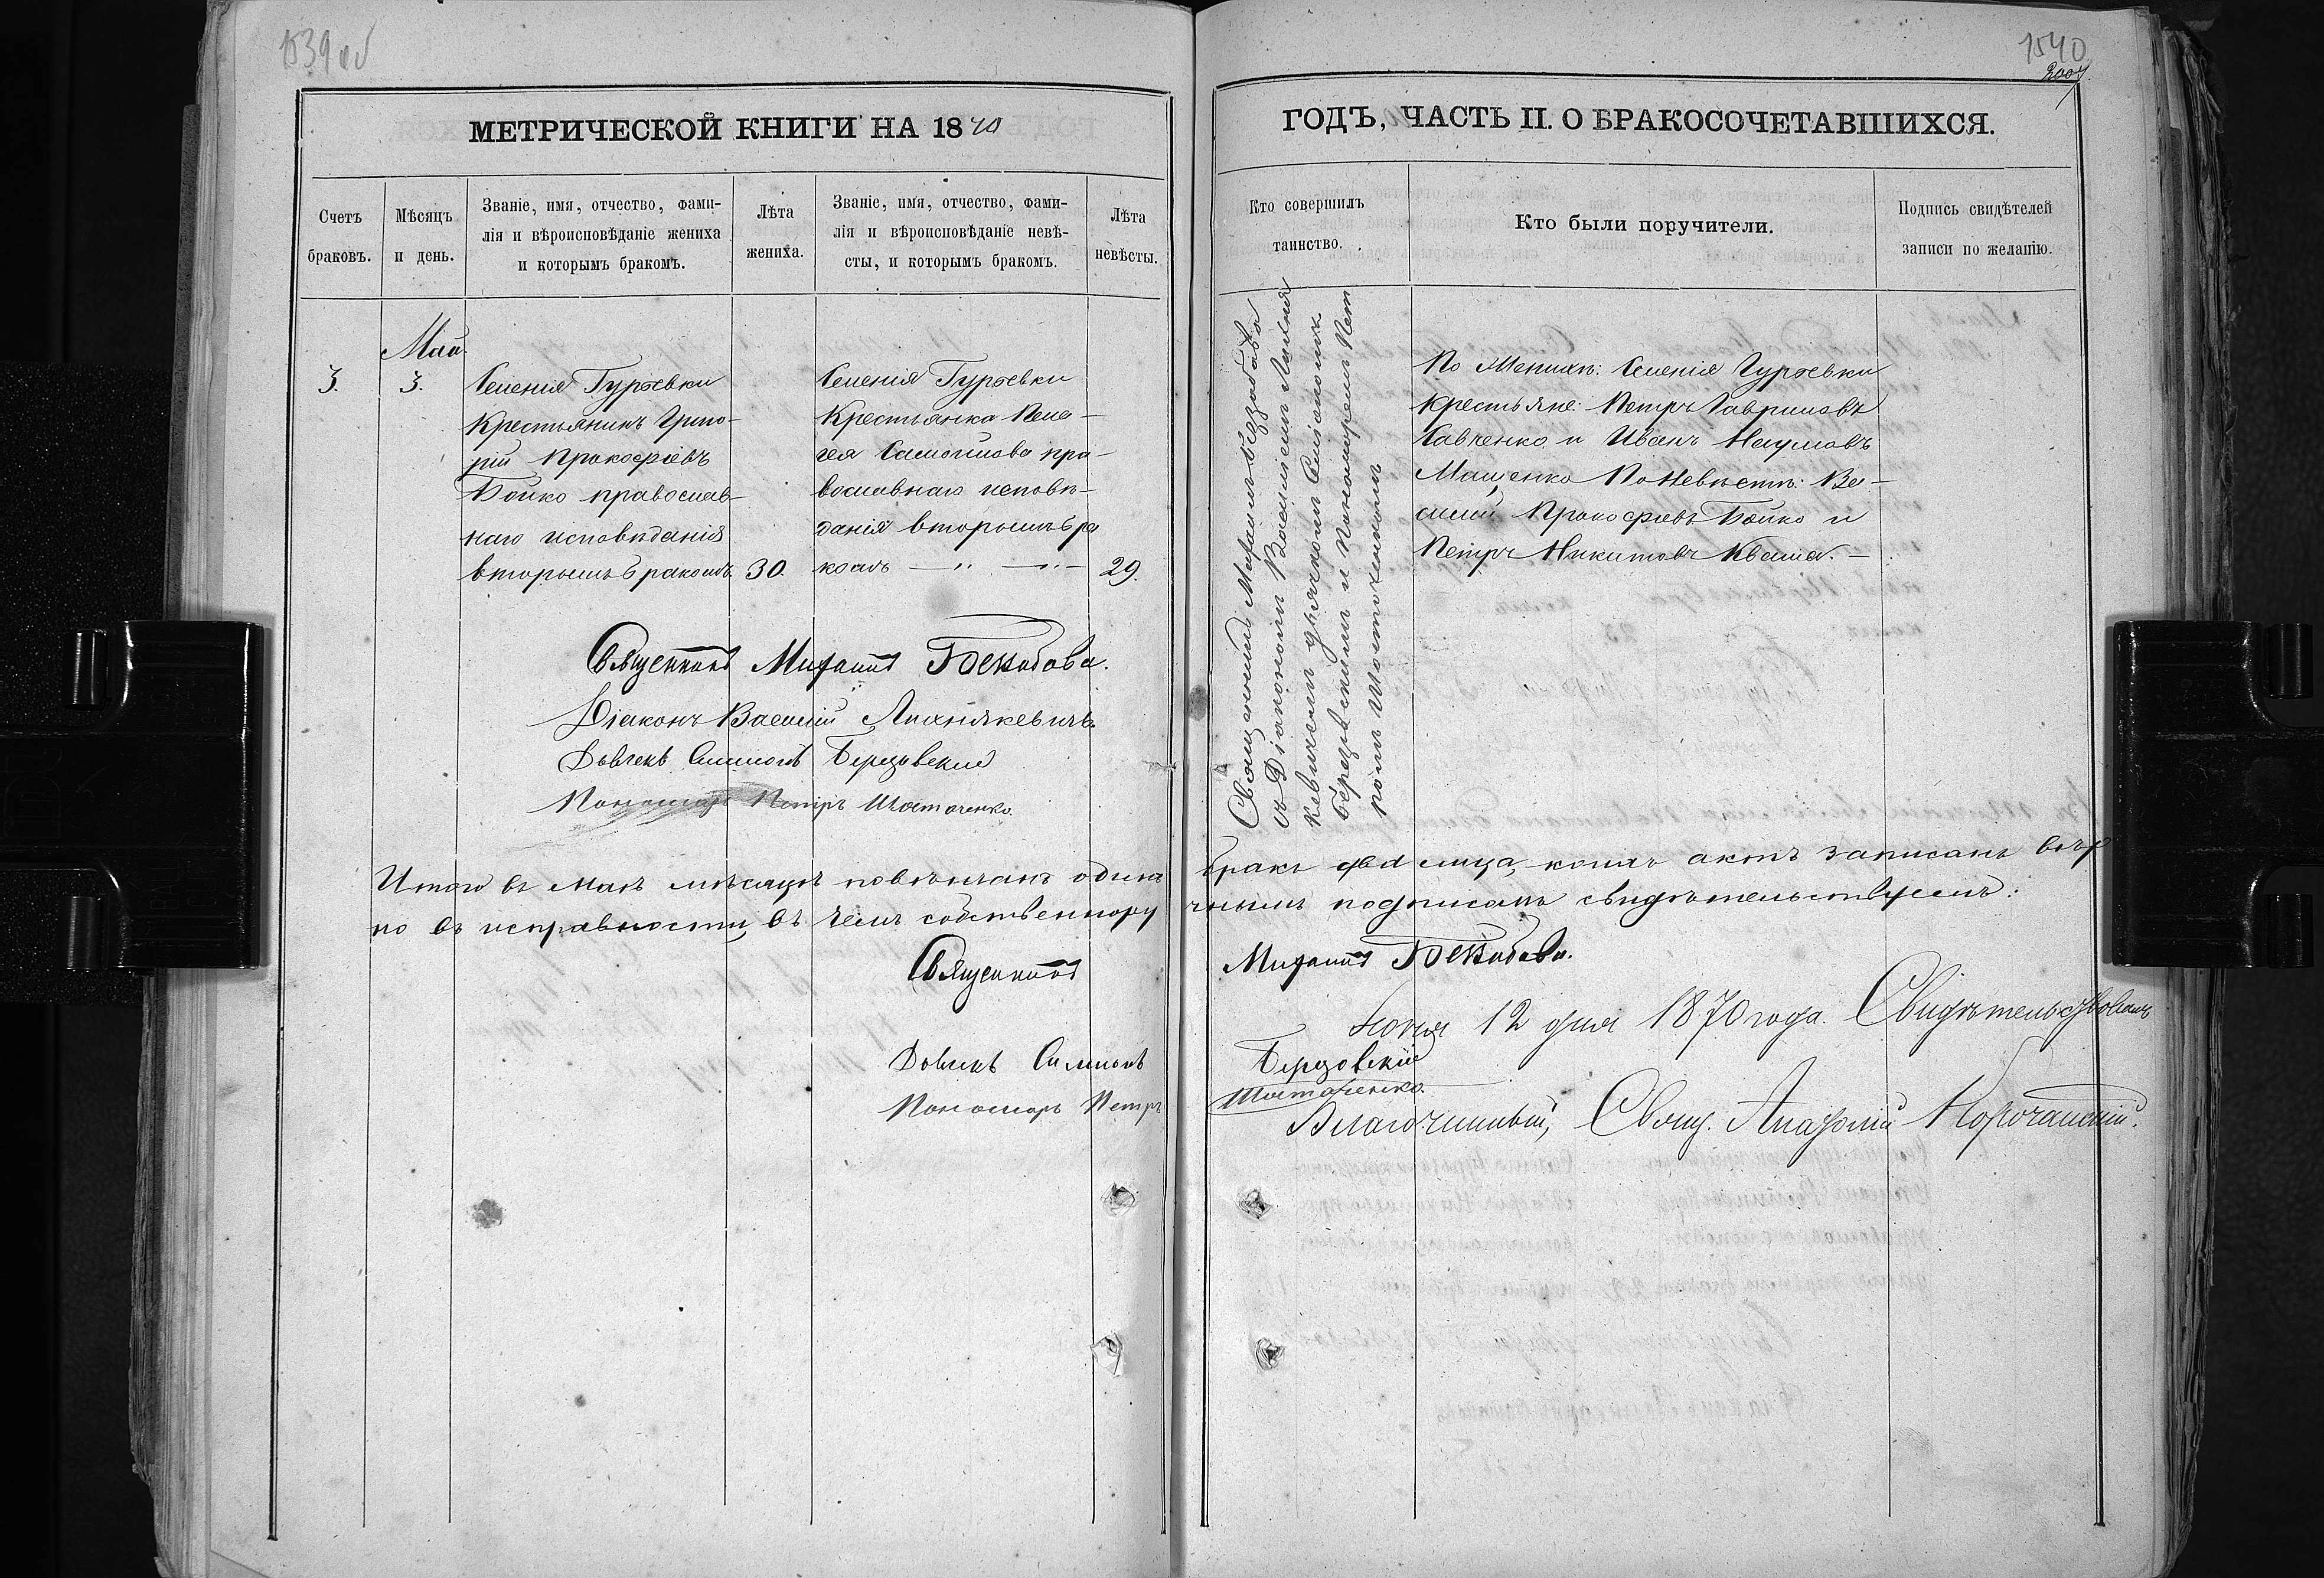 1539 об
1540
2007.
МЕТРИЧЕСКОЙ КНИГИ НА 1870
ГОДЪ, ЧАСТЬ II. О БРАКОСОЧЕТАВШИХСЯ.
Счетъ
браковъ.
Мѣсяцъ
и день.
Званіе, имя, отчество, фами-
лія и вѣроисповѣданіе жениха
и которымъ бракомъ.
Лѣта
жениха.
Званіе, имя, отчество, фами-
лія и вѣроисповѣданіе невѣ-
сты, и которымъ бракомъ.
Лѣта
невѣсты.
Кто совершилъ
таинство.
Кто были поручители.
Подпись свидѣтелей
записи по желанію.
Май
3. 3.
Селенія Гурьевки
Крестьянинъ Григо-
рій Прокофіевъ
Бойко православ-
наго исповѣданія
вторымъ бракомъ. 30.
Селенія Гурьевки
Крестьянка Пела-
гея Самойлова пра-
вославнаго исповѣ-
данія вторымъ бра
комъ — „ — „ — 29.
Священникъ Михаилъ Беззабава
съ Діакономъ Василіемъ Лихня
кевичемъ дьячкомъ Симіономъ
Березовскимъ и Пономаремъ Пет
ромъ Шосточенкомъ
По Женихѣ: Селенія Гурьевки
крестьяне: Петръ Гавриловъ
Савченко и Иванъ Наумовъ
Мащенко По Невѣстѣ: Ва-
силій Прокофіевъ Бойко и
Петръ Никитовъ Кваша. —
Священникъ Михаилъ Беззабава.
Діаконъ Василій Лихнякевичъ.
Дьячекъ Симіонъ Березовскій
Пономарь Петръ Шосточенко.
Итого въ Маѣ мѣсяцѣ повѣнчанъ одинъ бракъ два лица, коихъ актъ записанъ вѣр
но въ исправности, въ чемъ собственнору чнымъ подписомъ свидѣтельствуемъ:
Священникъ Михаилъ Беззабава.
Іюня 12 дня 1870 года. Свидѣтельствовалъ
Дьячекъ Симіонъ Березовскій
Пономарь Петръ Шосточенко.
Благочинный, Свящ. Корочанскій.